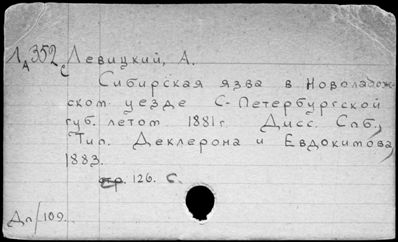 ЛА352с Левицкий, А.
Сибирская язва в Новоладож-
ском уезде С-Петербургской
губ. летом 1881г. Дисс. Спб.,
Тип. Деклерона и Евдокимова,
1883.
стр. 126. с.
Дп/109.